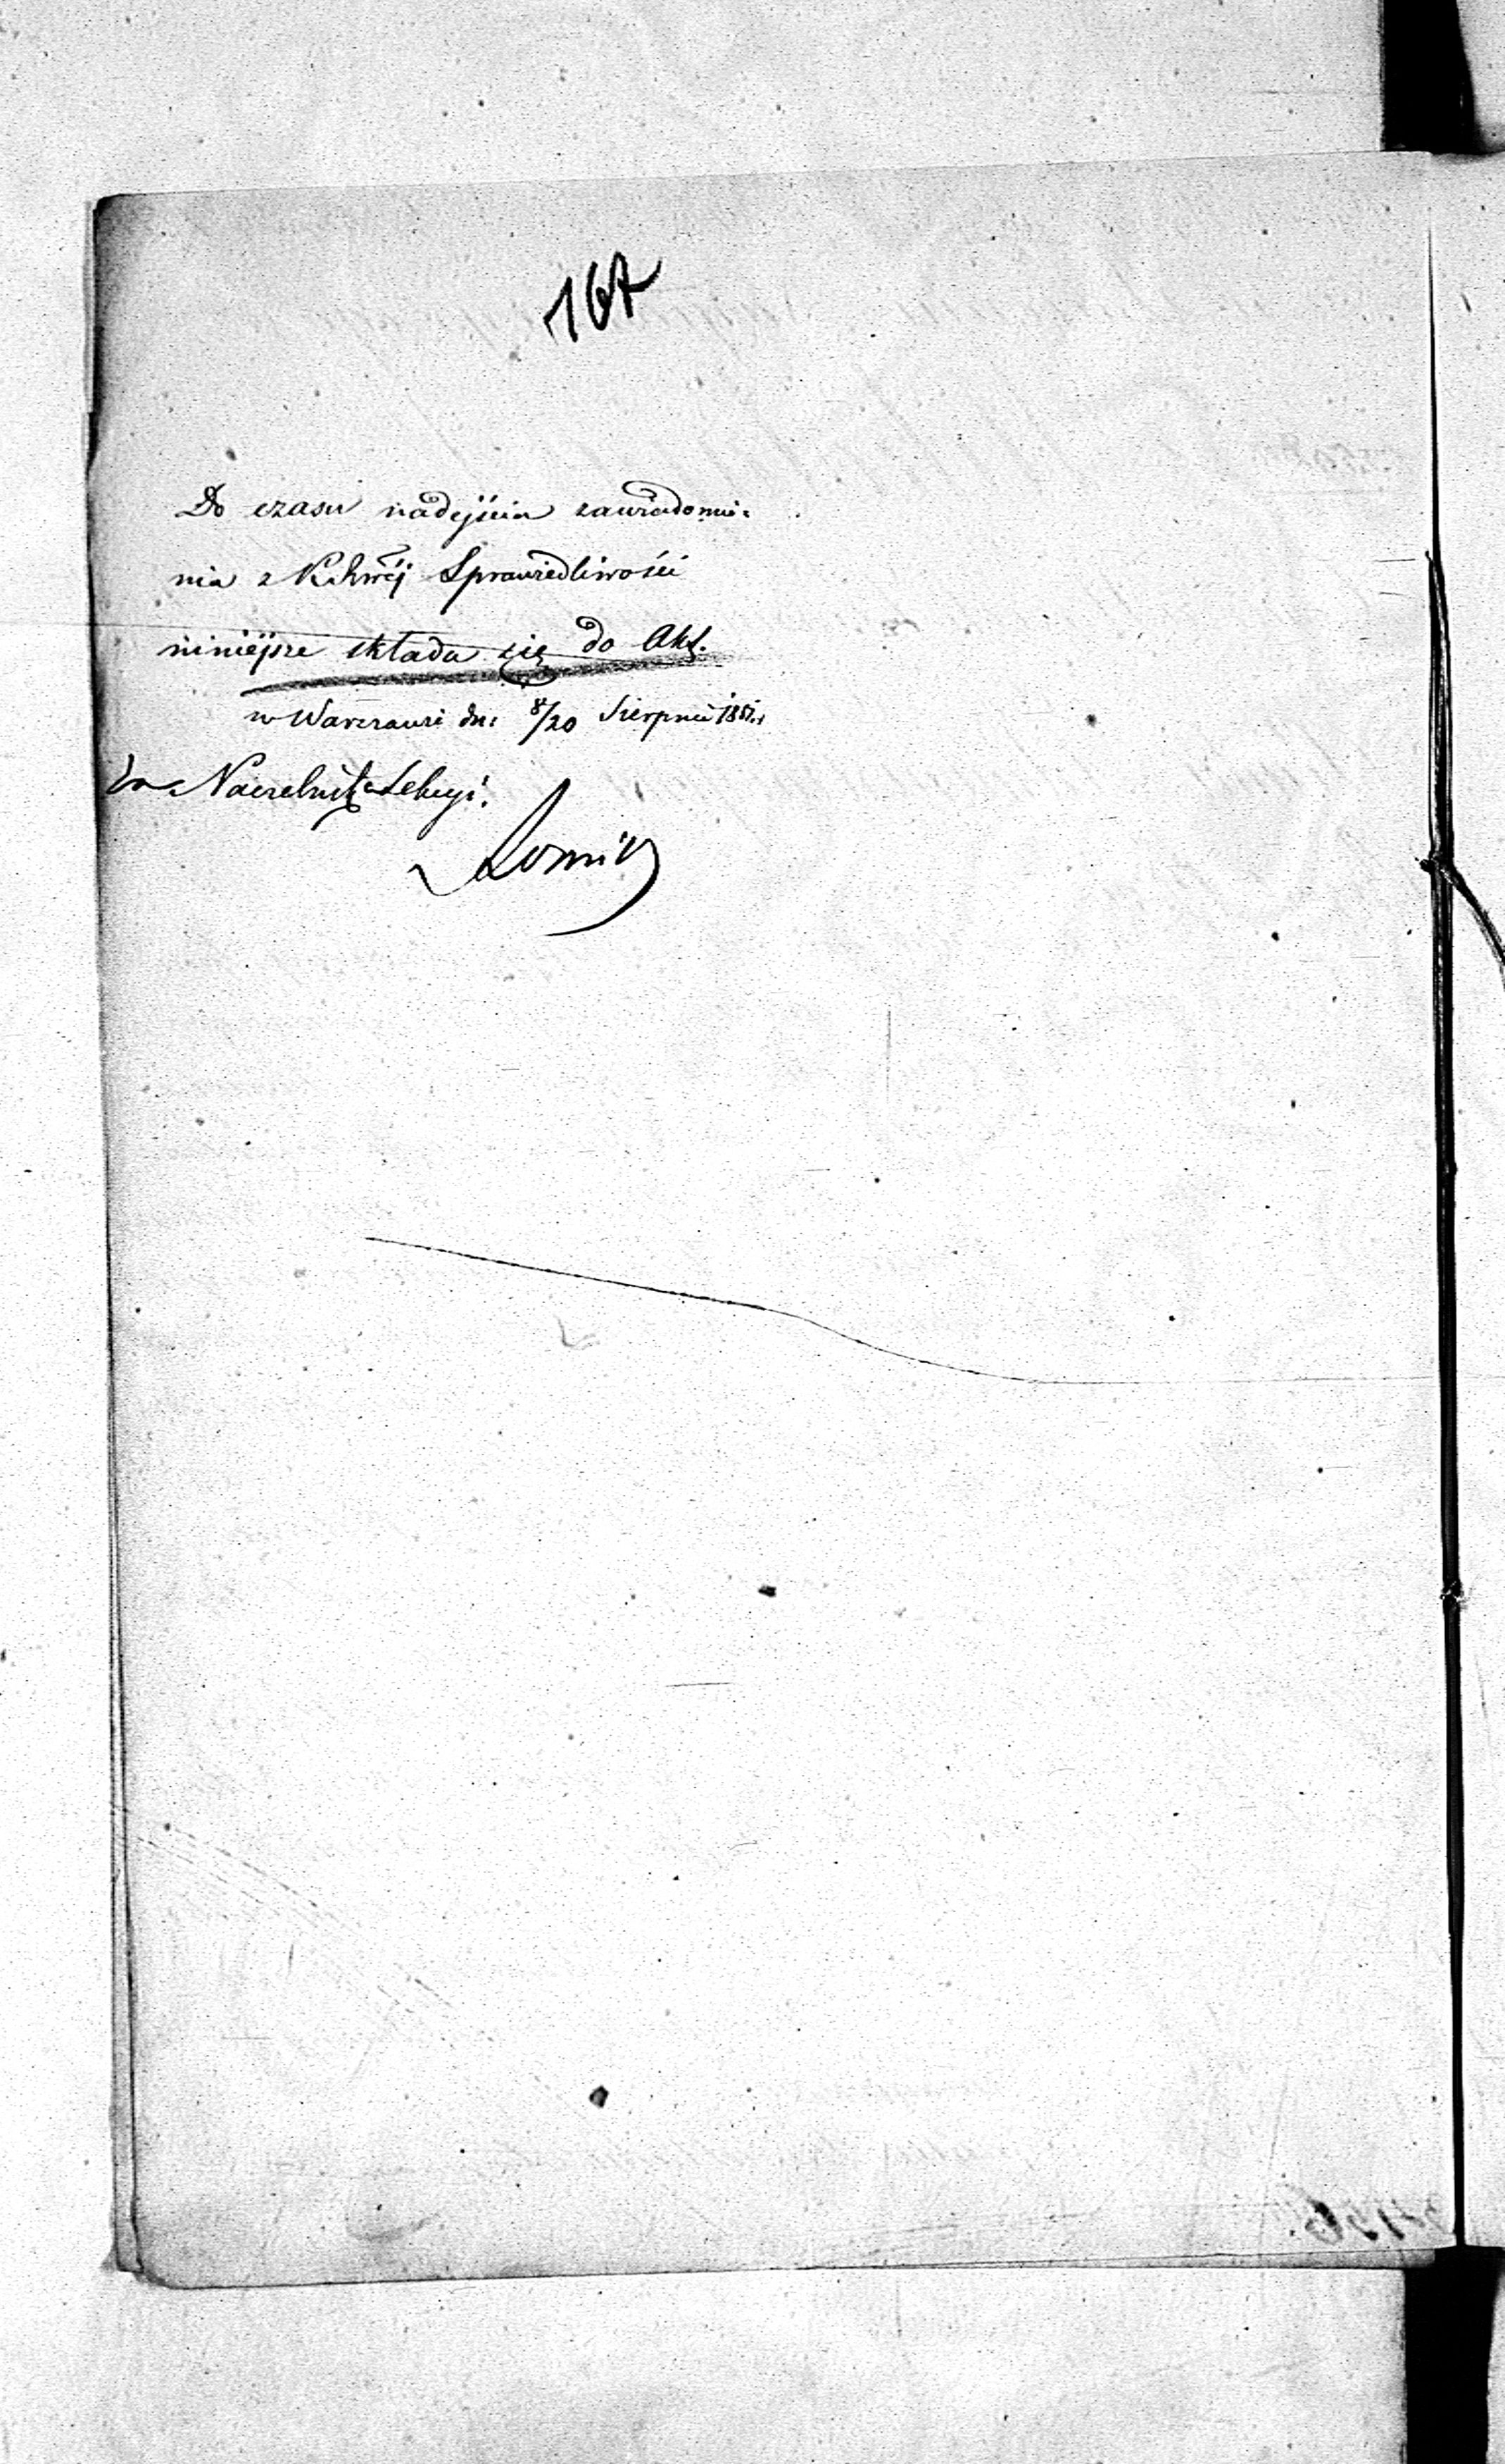 167
Do czasu nadejścia zawiadomie-
nia z Sprawiedliwości
niniejsze składa się do Akt.
w Warszawie dn: 8/20 Sierpnia
Naczelnika Sekcyi.